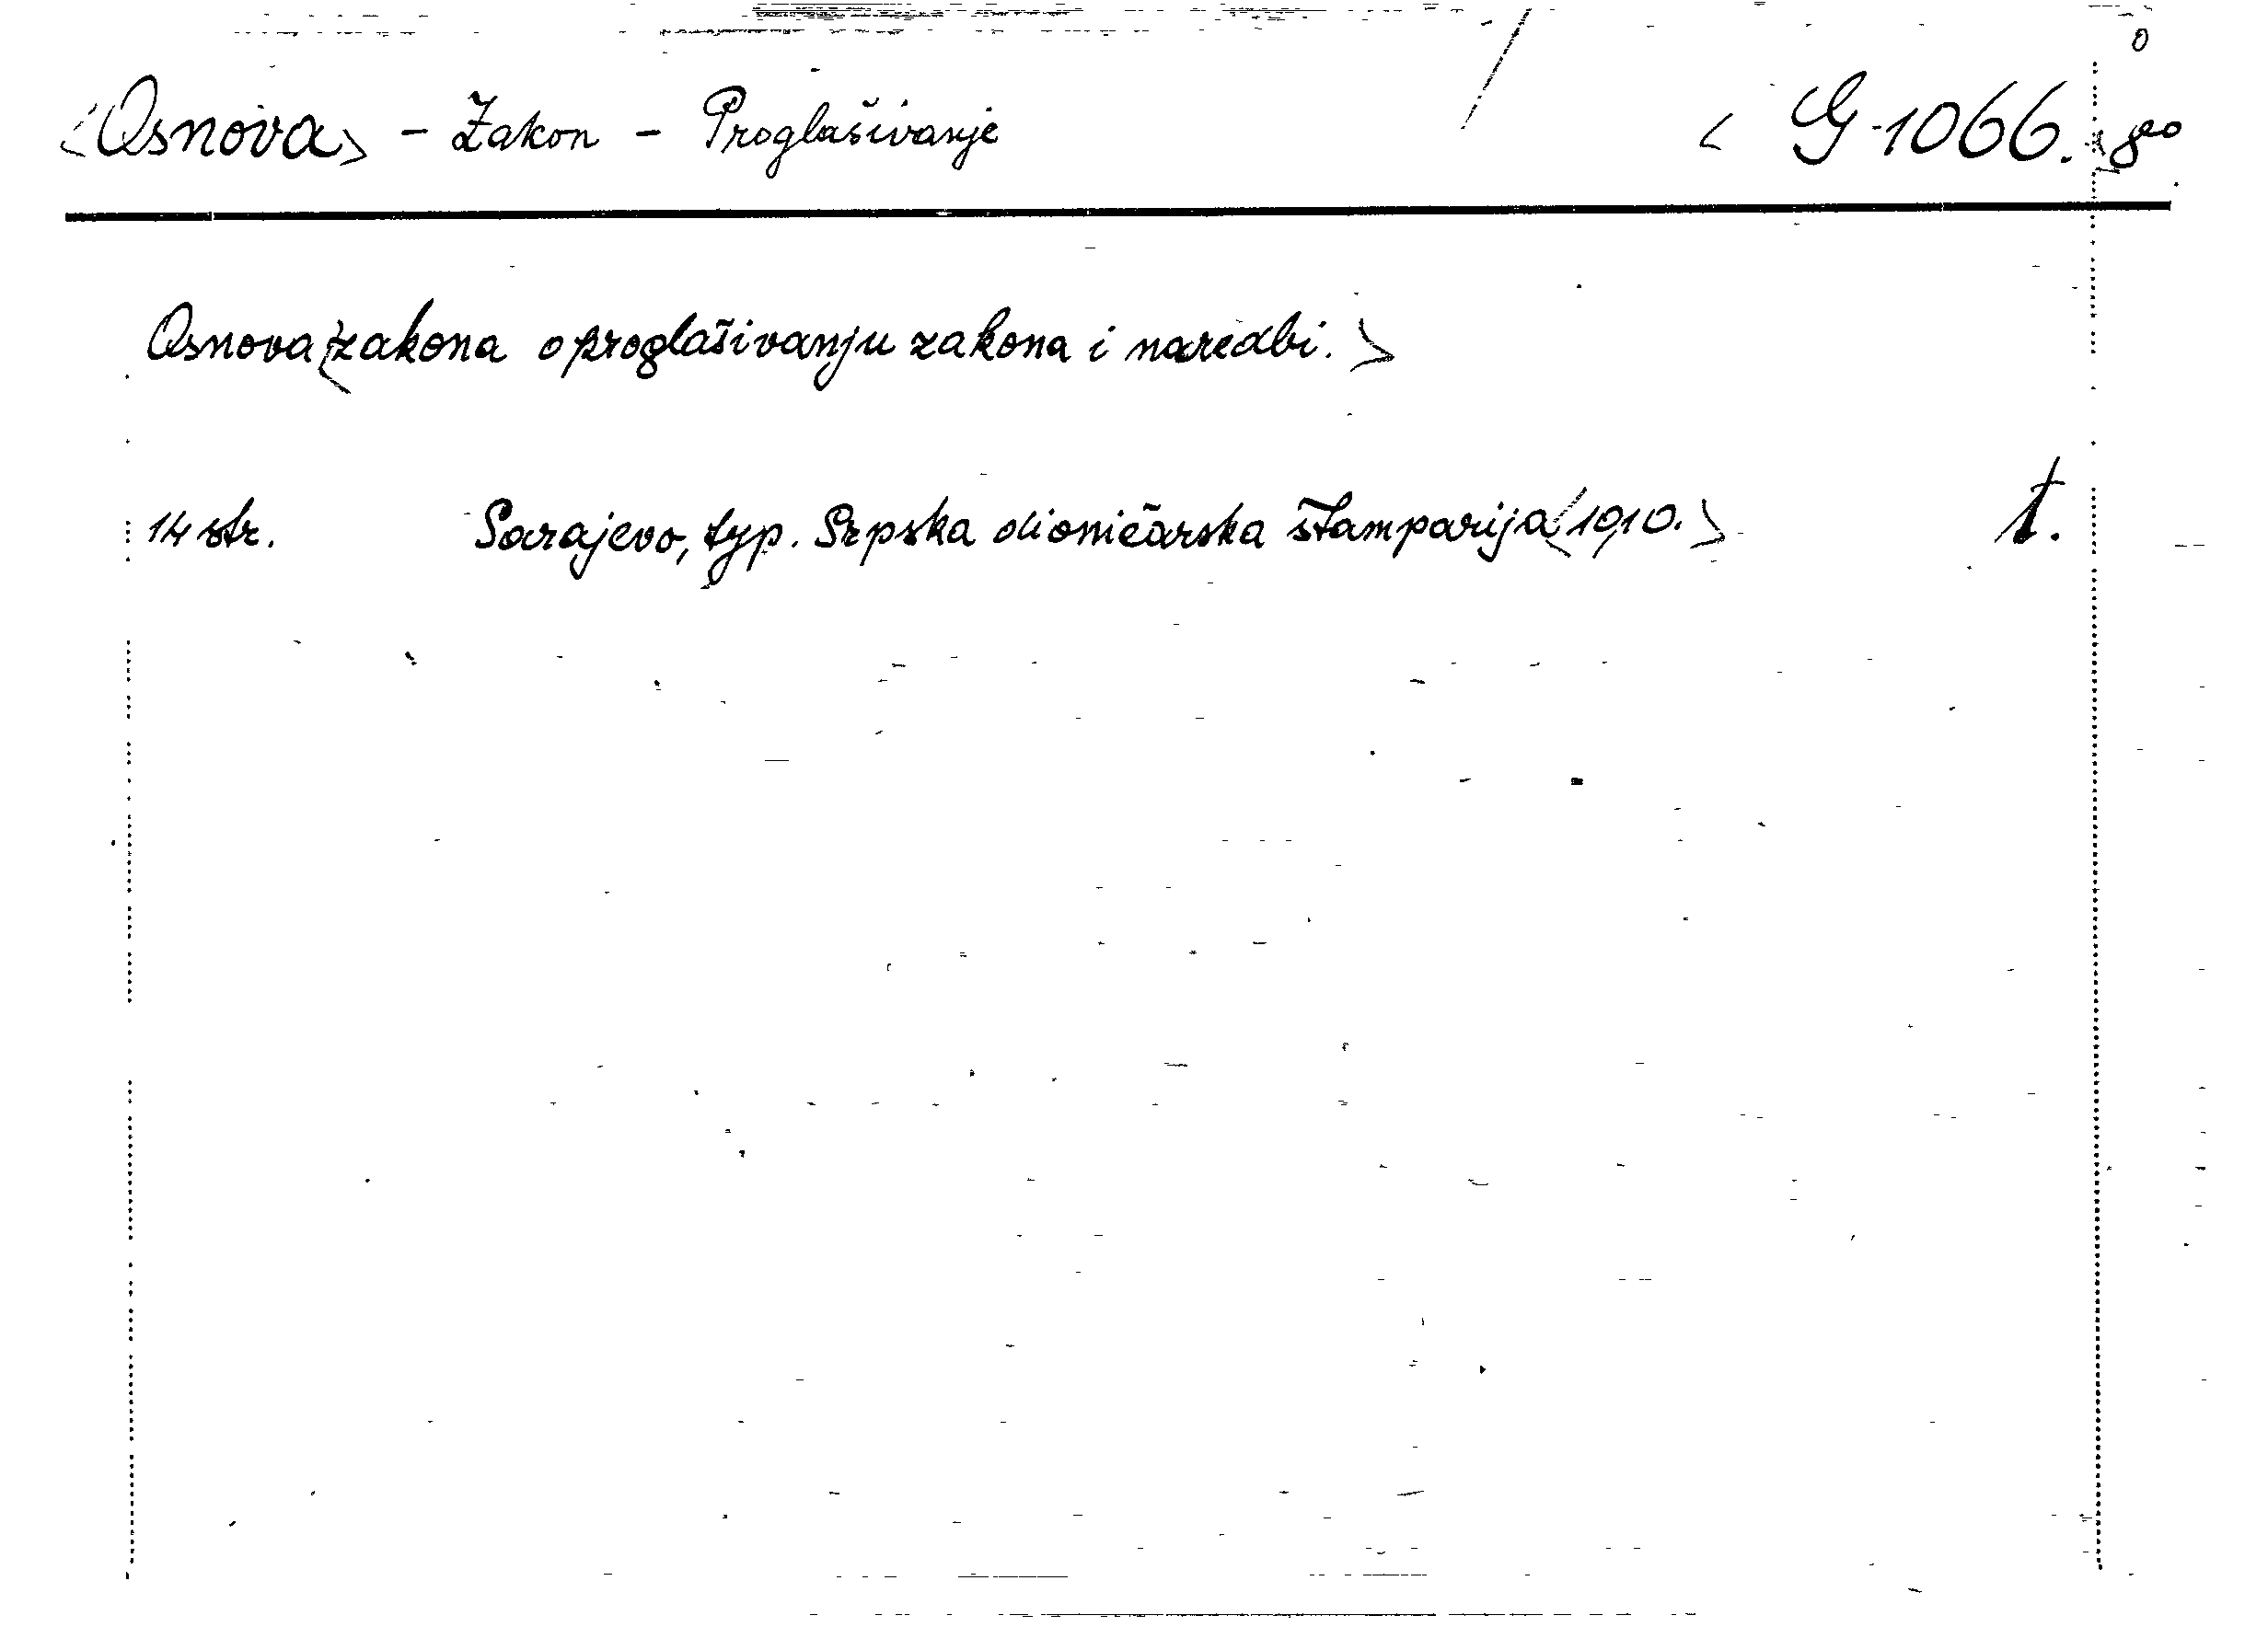 0
<Osnova> - Zakon - Proglašivanje / < G-1066. 8°
Osnova <zakona o proglašivanju zakona i naredbi.>
14 str. Sarajevo, typ. Srpska dioničarska štamparija <1910.> t.